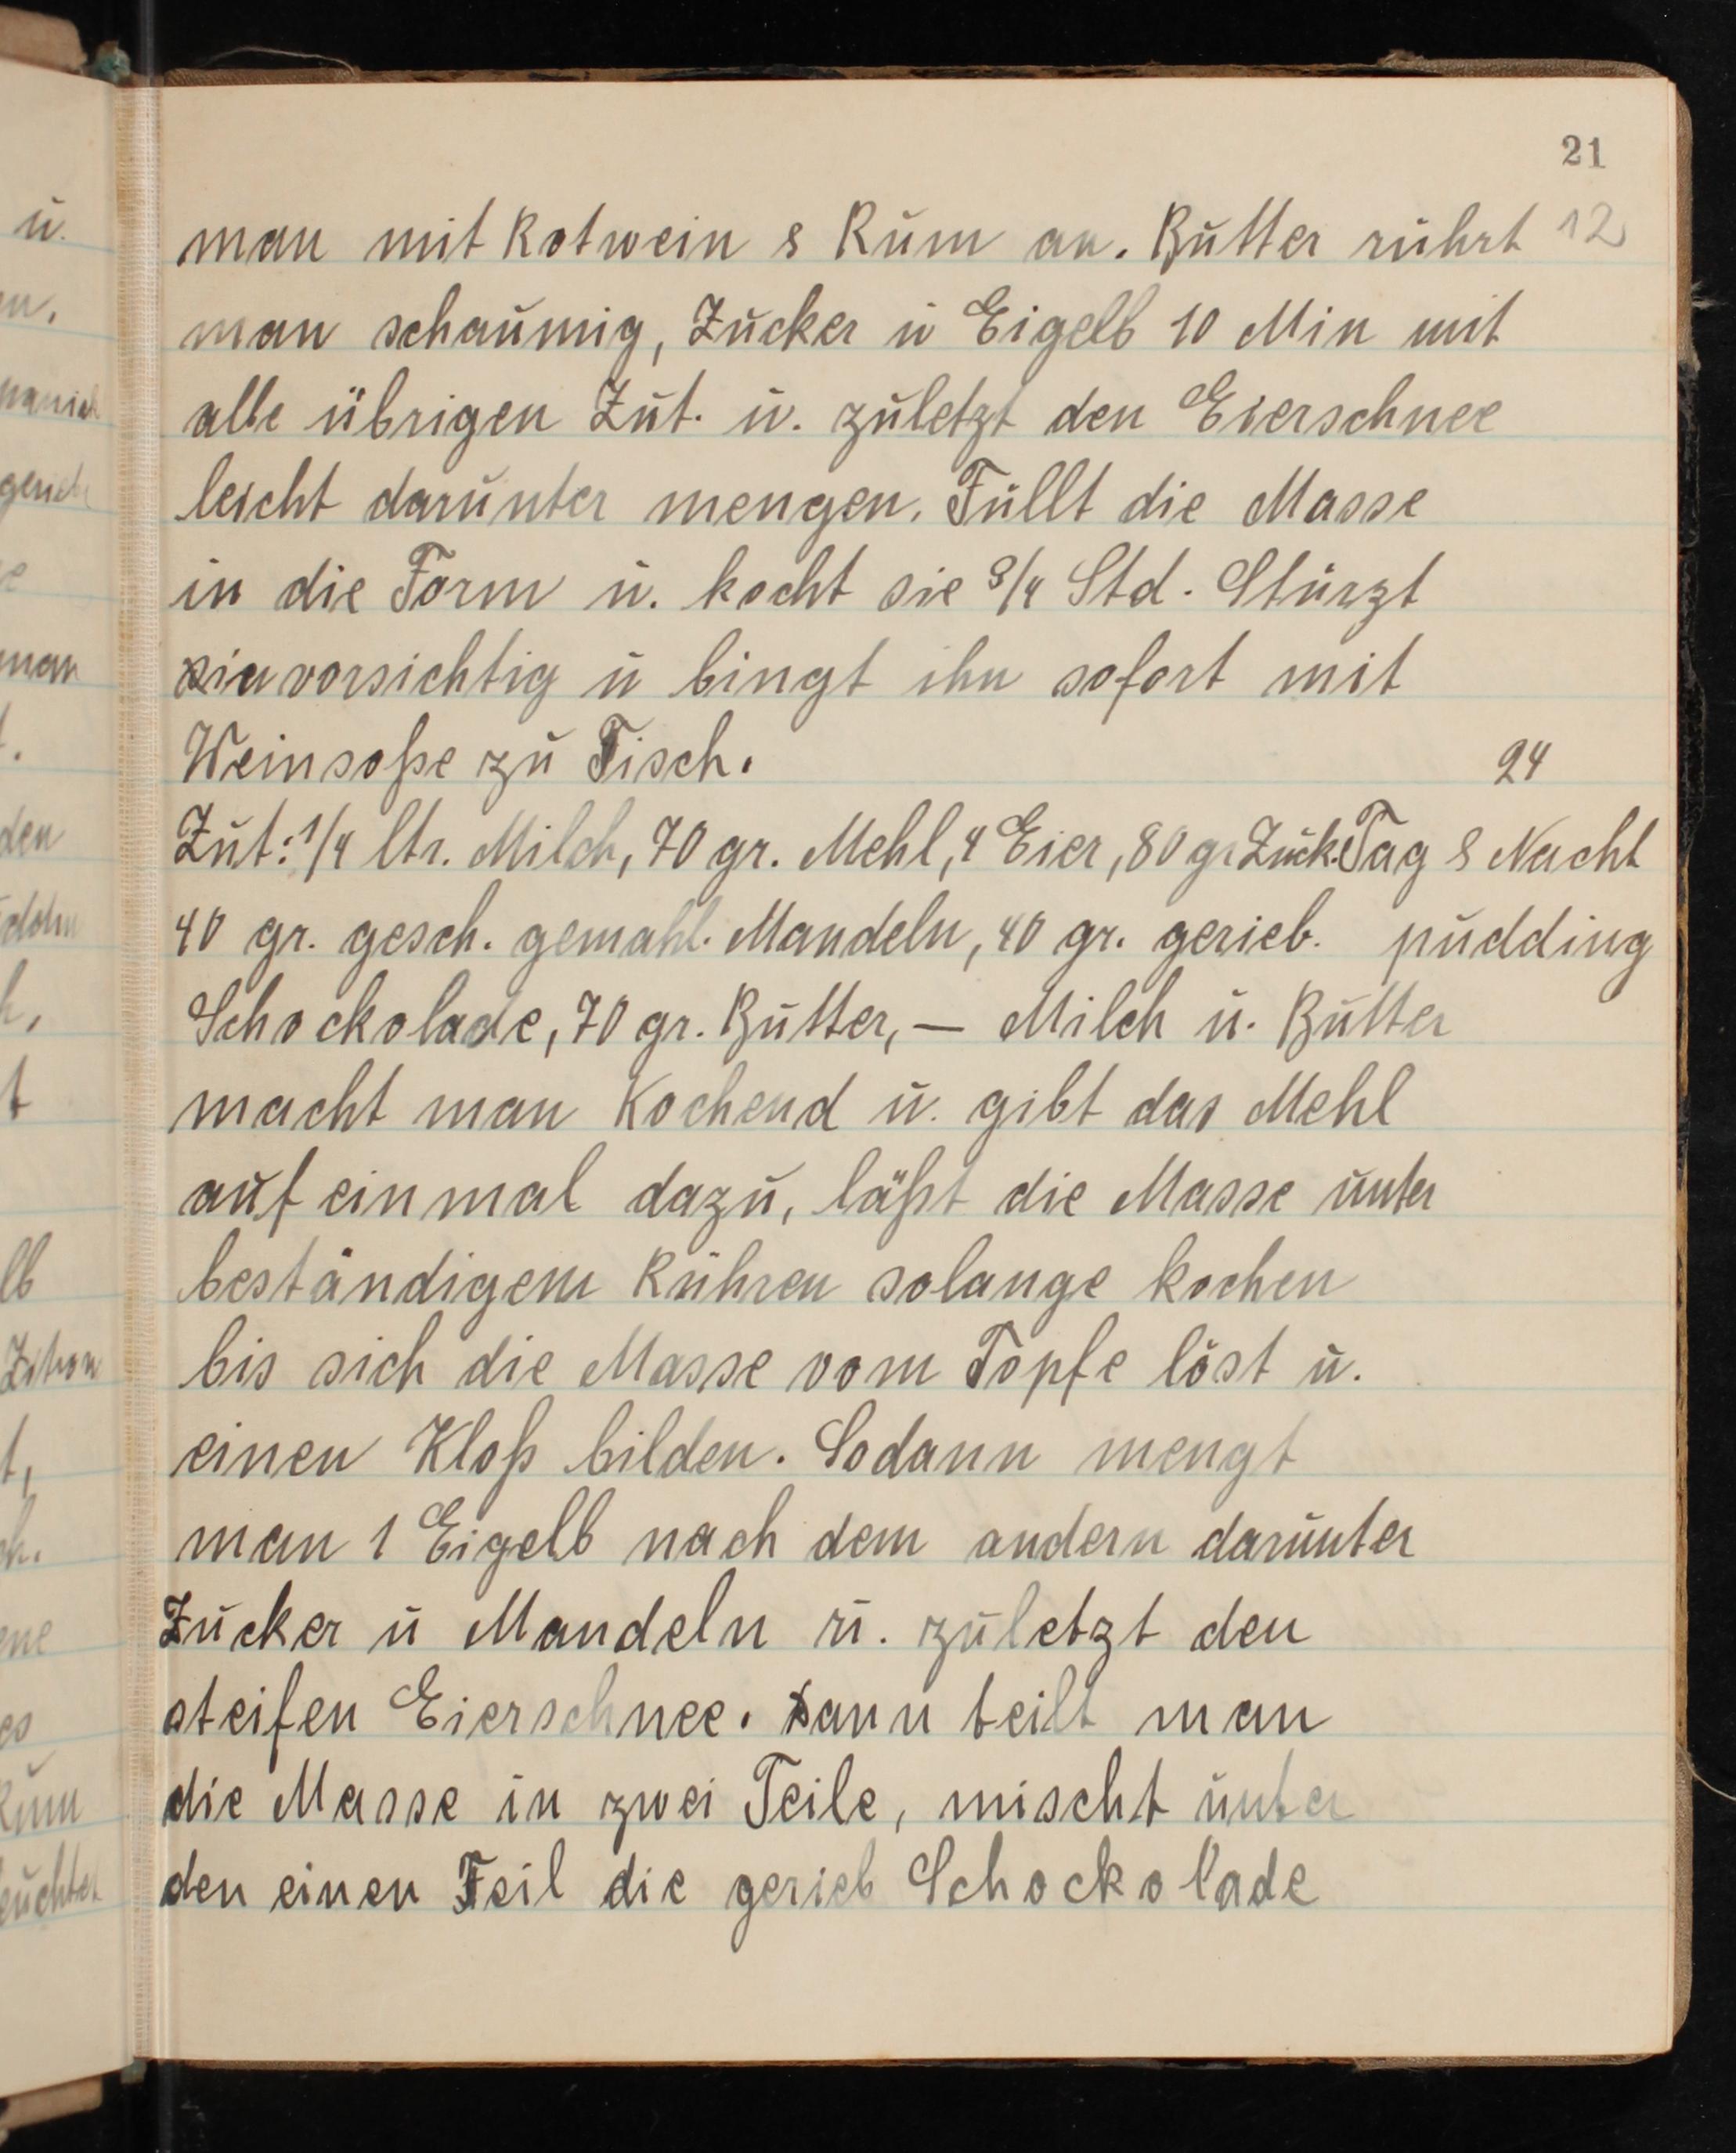 21
man mit Rotwein & Rum an. Butter rührt 12
man schaumig, Zucker u Eigelb 10 Min mit
alle übrigen Zut. u. zuletzt den Eierschnee
leicht darunter mengen. Füllt die Masse
in die Form u. kocht sie 3/4 Std. Stürzt
vorsichtig u bingt ihn sofort mit
Weinsoße zu Tisch. 24
Zut: 1/4 ltr. Milch, 70 gr. Mehl, 4 Eier, 80 gr Zuck. Tag & Nacht
40 gr. gesch. gemahl. Mandeln, 40 gr. gerieb. pudding
Schockolade, 70 gr. Butter, — Milch u. Butter
macht man Kochend u. gibt das Mehl
auf einmal dazu, läßt die Masse unter
beständigem Rühren solange kochen
bis sich die Masse vom Topfe löst u.
einen Kloß bilden. Sodann mengt
man 1 Eigelb nach dem andern darunter
Zucker u Mandeln u. zuletzt den
steifen Eierschnee. Dann teilt man
die Masse in zwei Teile, mischt unter
den einen Teil die gerieb Schockolade